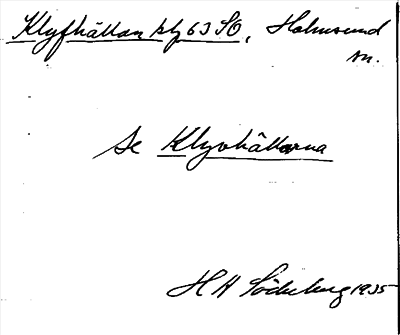 Klyfhällan blz 63 SO, Holmsund
sn.
Se Klyvhällarna
H H Söderberg 1935